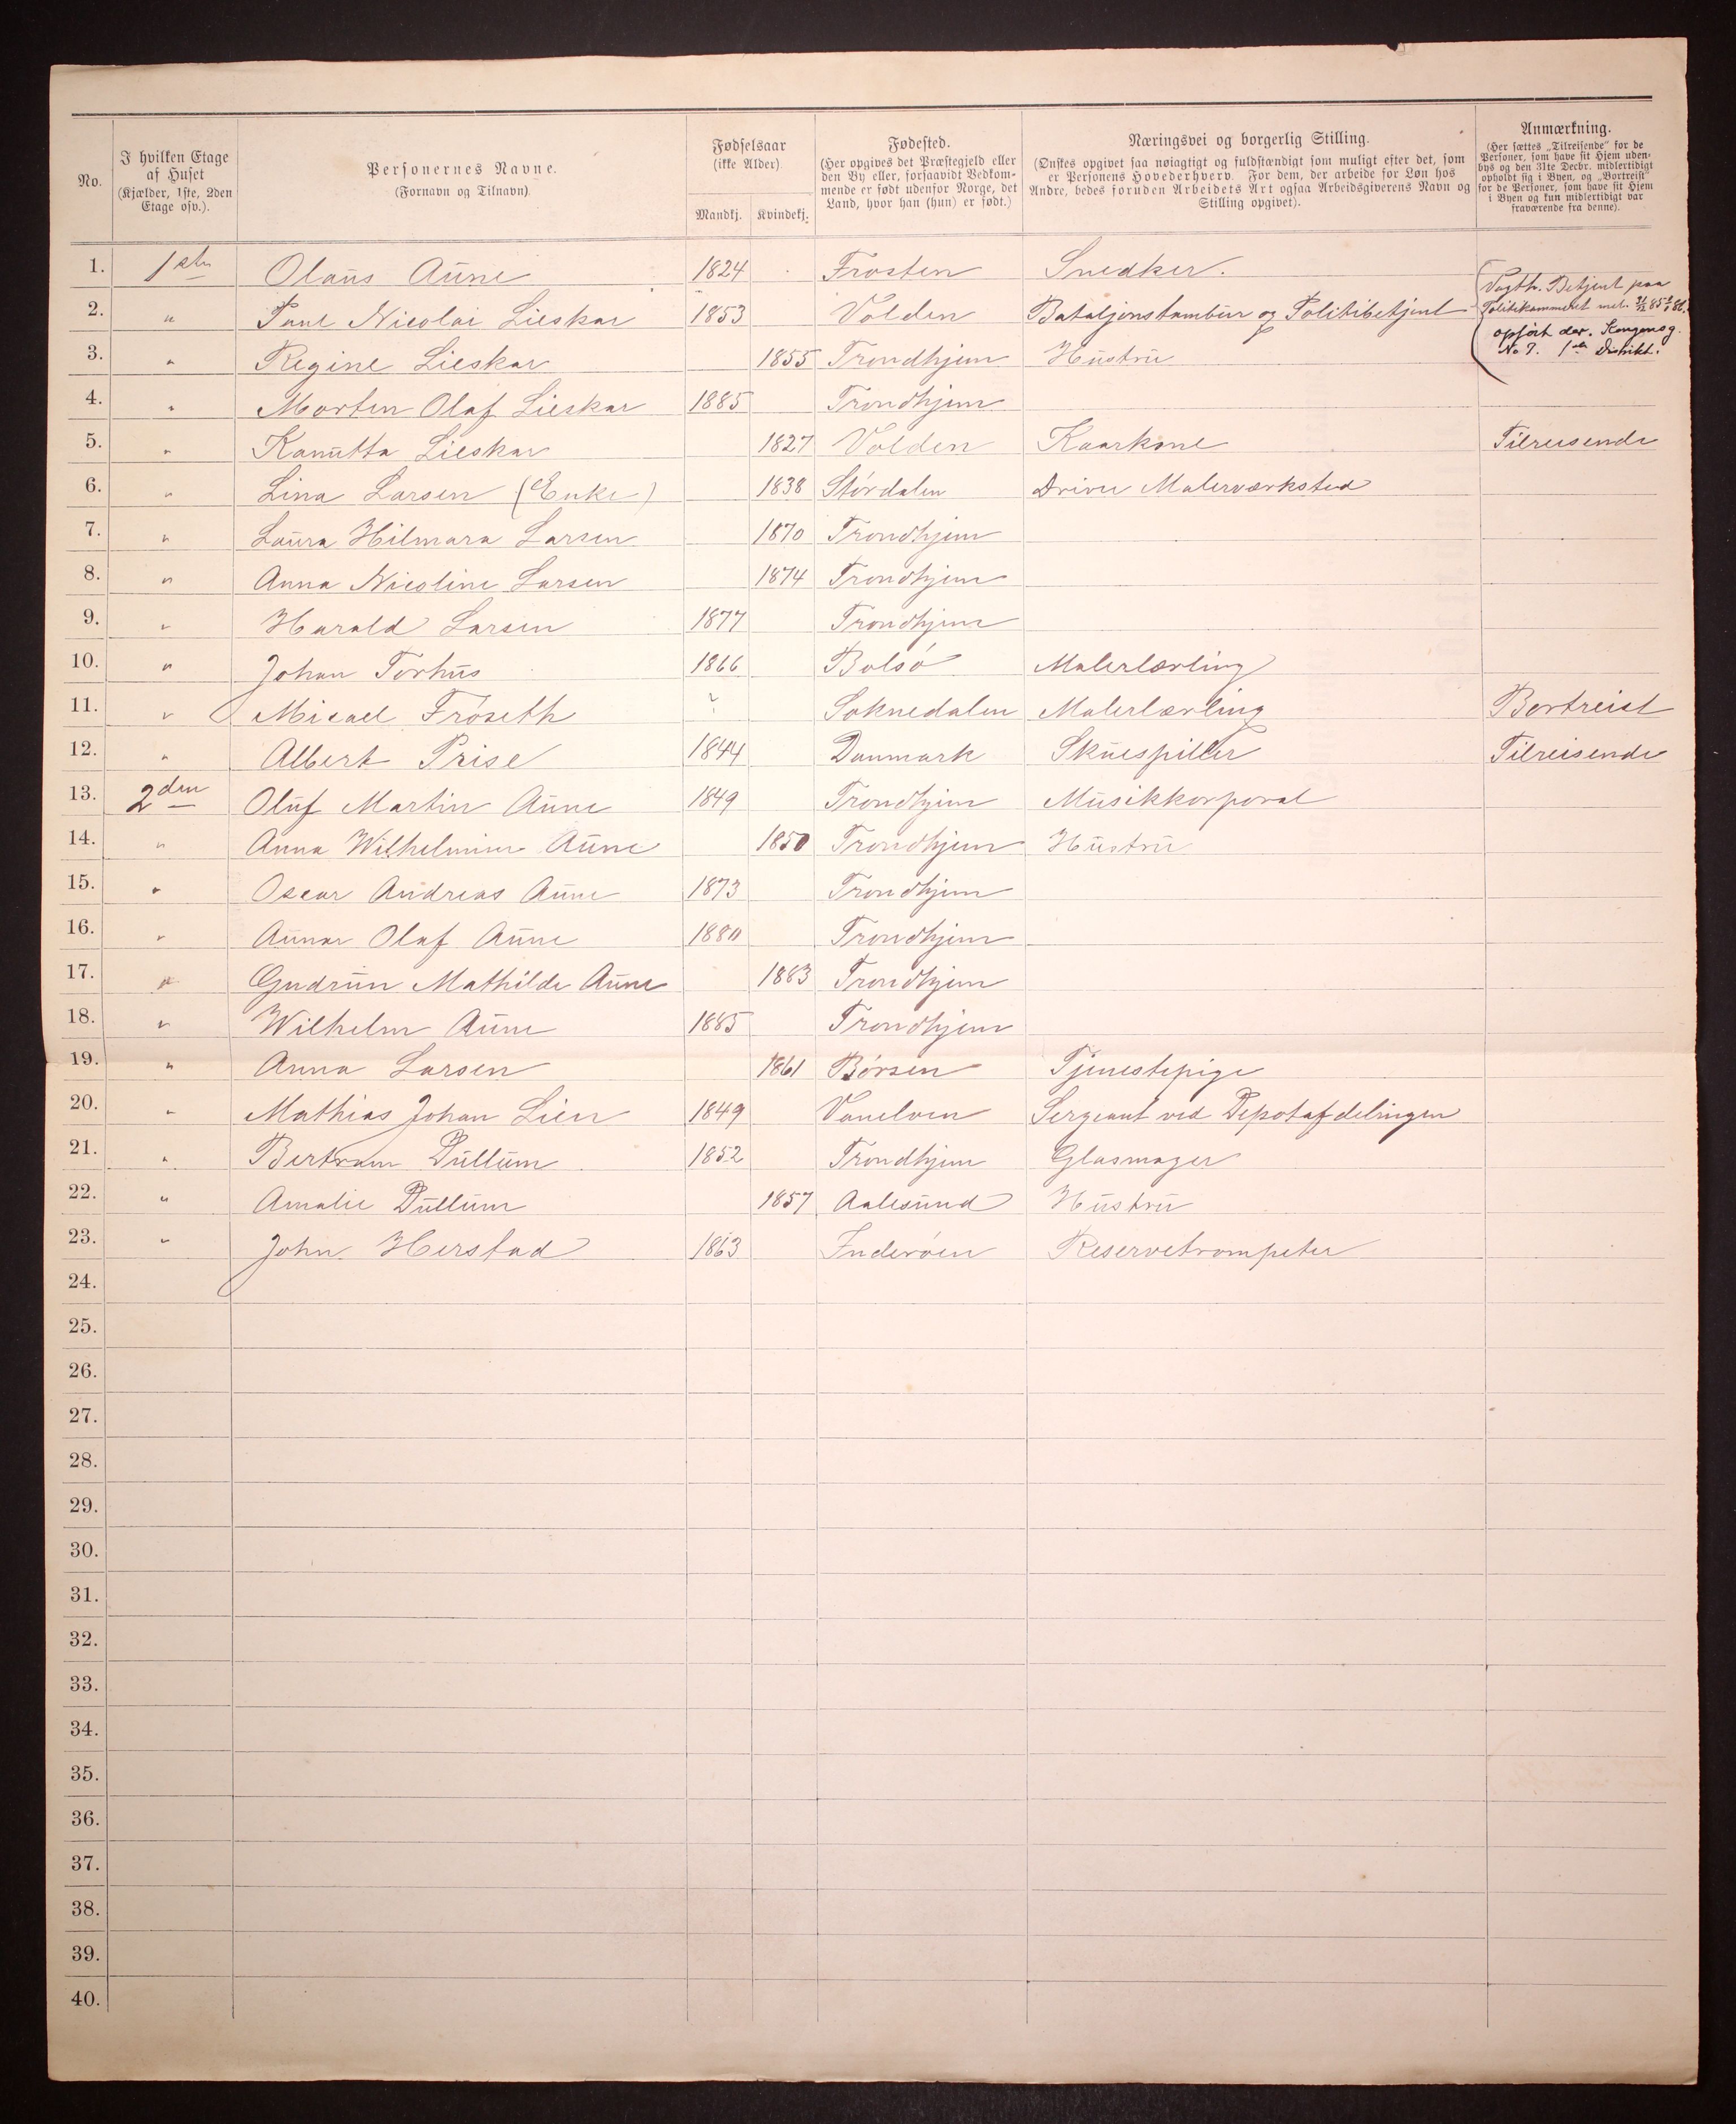 No.
I hvilken Etage af Huset (Kjælder, 1ste, 2den Etage osv.).
Personernes Navne. (Fornavn og Tilnavn).
Fødselsaar (ikke Alder).
Mandkj. Kvindekj.
Fødested. (Her opgives det Præstegjeld eller den By eller, forsaavidt Vedkommende er født udenfor Norge, det Land, hvor han (hun) er født.)
Næringsvei og borgerlig Stilling. (Ønskes opgivet saa nøiagtigt og fuldstændigt som muligt efter det, som er Personens Hovederhverv. For dem, der arbeide for Løn hos Andre, bedes foruden Arbeidets Art ogsaa Arbeidsgiverens Navn og Stilling opgivet).
Anmærkning. (Her sættes „Tilreisende" for de Personer, som have sit Hjem udenbys og den 31te Decbr. midlertidigt opholdt sig i Byen, og „Bortreist" for de Personer, som have sit Hjem i Byen og kun midlertidigt var fraværende fra denne).
1. 1ste Olaus Aune 1824 Frosten Snedker.
2. " Paul Nicolai Lieskar 1853 Volden Bataljonstambur og Politibetjent
Vagth. Betjent paa
Politikammeret mel. 31/12 85 1/1 86.
opført der. Kongensg.
No 7. 1ste Distrikt.
3. " Regine Lieskar 1855 Trondhjem Hustru
4. " Morten Olaf Lieskar 1885 Trondhjem
5. " Kanutta Lieskar 1827 Volden Kaarkone Tilreisende
6. " Lina Larsen (Enke) 1838 Størdalen Driver Malerværksted
7. " Laura Hilmara Larsen 1870 Trondhjem
8. " Anna Nicoline Larsen 1874 Trondhjem
9. " Harald Larsen 1877 Trondhjem
10. " Johan Torhus 1866 Bolsø Malerlærling
11. " Micael Frøseth ? Soknedalen Malerlærling Bortreist
12. " Albert Prise 1844 Danmark Skuespiller Tilreisende
13. 2den Oluf Martin Aune 1849 Trondhjem Musikkorporal
14. " Anna Wilhelmine Aune 1850 Trondhjem Hustru
15. " Oscar Andreas Aune 1873 Trondhjem
16. " Aunar Olaf Aune 1880 Trondhjem
17. " Gudrun Mathilde Aune 1883 Trondhjem
18. " Wilhelm Aune 1885 Trondhjem
19. " Anna Larsen 1861 Børsen Tjenestepige
20. " Mathias Johan Lien 1849 Vanelven Sergeant ved Depotafdelingen
21. " Bertram Dullum 1852 Trondhjem Glasmager
22. " Amalie Dullum 1857 Aalesund Hustru
23. " John Herstad 1863 Inderøen Reservetrompeter
24.
25.
26.
27.
28.
29.
30.
31.
32.
33.
34.
35.
36.
37.
38.
39.
40.